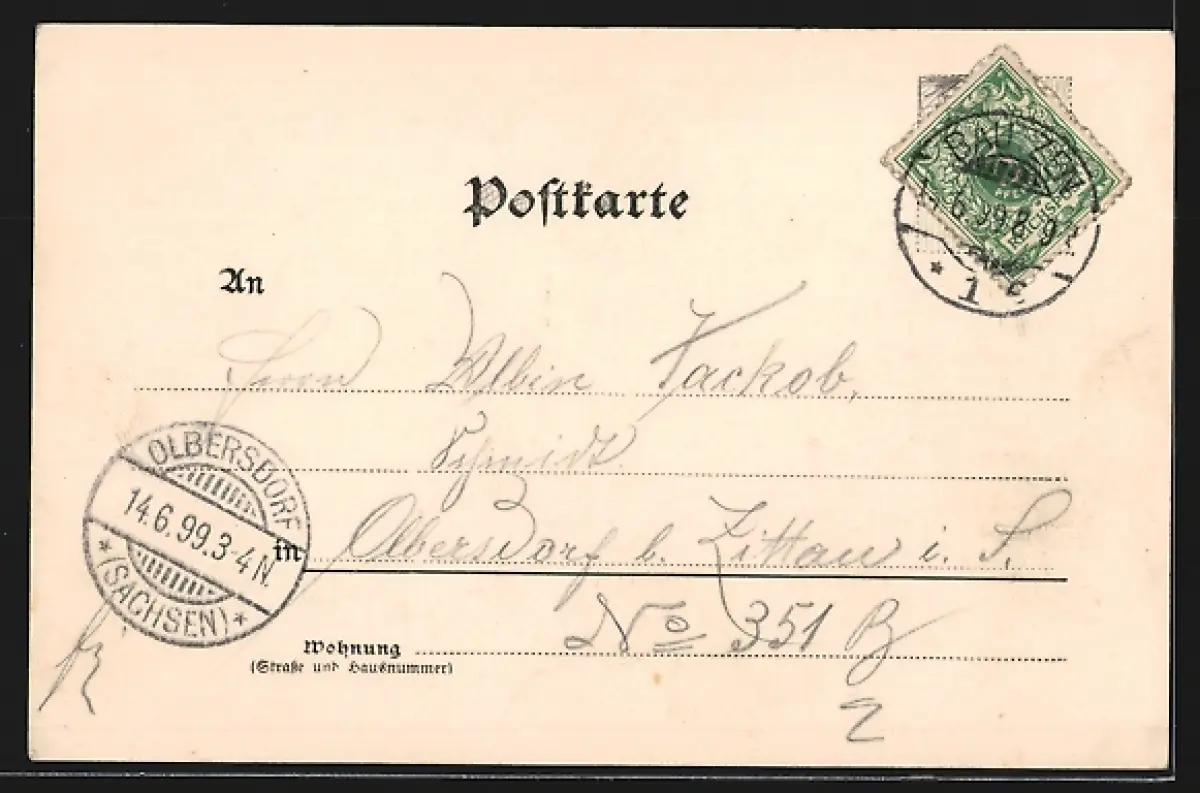 Postkarte
BAUTZEN
6.99.8-9
* 1 c
An
Herrn Albin Jackob,
Schmidt.
OLBERSDORF
14.6.99.3-4N.
*(SACHSEN)*
in Olbersdorf b. Zittau i. S.
No 351 B
Wohnung
(Straße und Hausnummer)
2